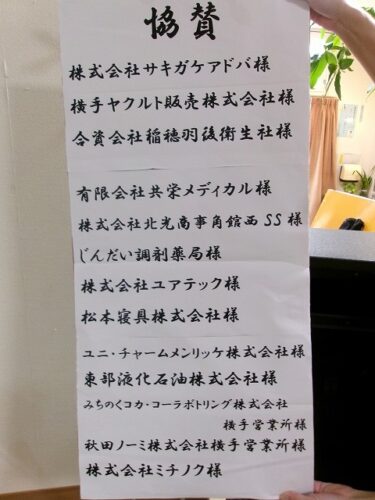 協賛
株式会社サキガケアドバ様
横手ヤクルト販売株式会社様
合資会社稲穂羽後衛生社様
有限会社共栄メディカル様
株式会社北光商事角館西SS様
じんだい調剤薬局様
株式会社ユアテック様
松本寝具株式会社様
ユニ・チャームメンリッケ株式会社様
東部液化石油株式会社様
みちのくコカ・コーラボトリング株式会社
横手営業所様
秋田ノーミ株式会社横手営業所様
株式会社ミチノク様